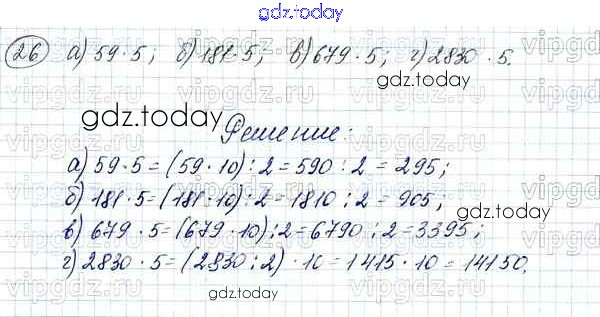 gdz.today
26 а) 59·5; б) 181·5; в) 679·5; г) 2830·5.
gdz.today
gdz.today
Решение:
а) 59·5=(59·10):2=590:2=295;
б) 181·5=(181·10):2=1810:2=905;
gdz.today
в) 679·5=(679·10):2=6790:2=3395;
г) 2830·5=(2830:2)·10=1415·10=14150.
gdz.today